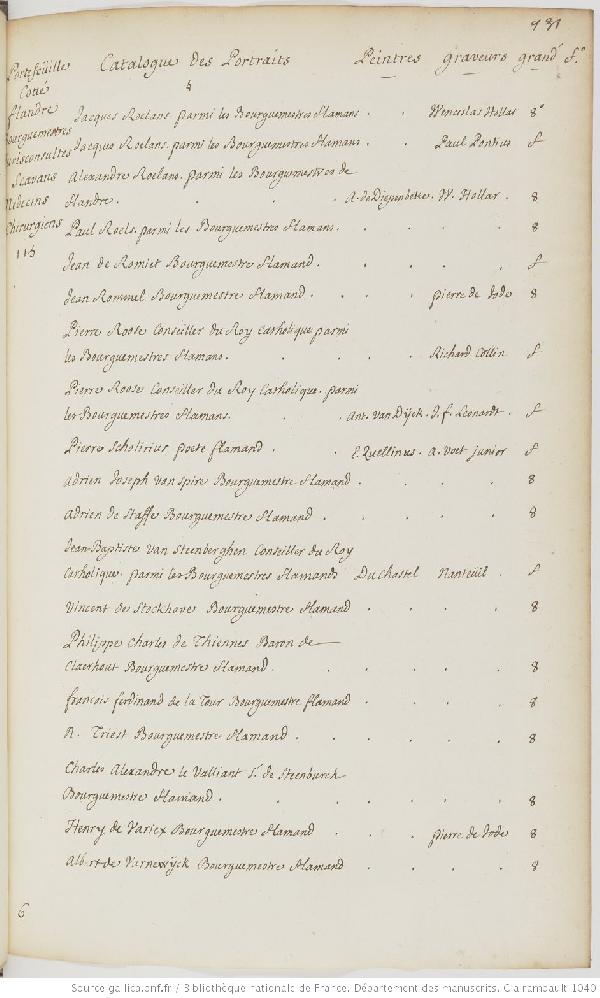 931
Portefeuille
Coté
flandre
Bourguemestres
Jurisconsultes
Scavans
Médecins
Chirurgiens
115
Catalogue des Portraits Peintres graveurs grand.r f.o
Jacques Roelans parmi les Bourguemestres flamans . . Wenceslas Hollar 8°
Jacque Roelans parmi les Bourguemestres flamans . . Paul Pontius f
Alexandre Roelans parmi les Bourguemestres de
flandre . . . . A. de Diependette . W. Hollar . 8
Paul Roels parmi les Bourguemestres flamans . . . . . 8
Jean de Romiet Bourguemestre flamand . . . . . f
Jean Rommel Bourguemestre flamand . . . pierre de Jode 8
Pierre Roose Conseiller du Roy Catholique parmi
les Bourguemestres flamans . . . . Richard Collin f
Pierre Roose Conseiller du Roy Catholique parmi
les Bourguemestres flamans . . Ant. Van Dijck . J. f. Leonardt . f
Pierre Scholirius poete flamand . . E. Quellinus . A. Voet junior f
Adrien Joseph Van Spire Bourguemestre flamand . . . . 8
Adrien de Staffe Bourguemestre flamand . . . . . 8
Jean-Baptiste Van Steenberghen Conseiller du Roy
Catholique parmi les Bourguemestres flamands DuChastel Nanteüil . f
Vincent de Stockhove Bourguemestre flamand . . . . 8
Philippe Charles de Thiennes Baron de
Claerhout Bourguemestre flamand . . . . . 8
françois ferdinand de la Tour Bourguemestre flamand . . . . 8
N. Triest Bourguemestre flamand . . . . . . 8
Charles Alexandre le Valliant S.r de Steenburck
Bourguemestre flamand . . . . . . 8
Henry de Variex Bourguemestre flamand . . . pierre de Jode 8
Albert de Varnewijck Bourguemestre flamand . . . . 8
6
Source gallica.bnf.fr / Bibliothèque nationale de France. Département des manuscrits. Clairambault 1040